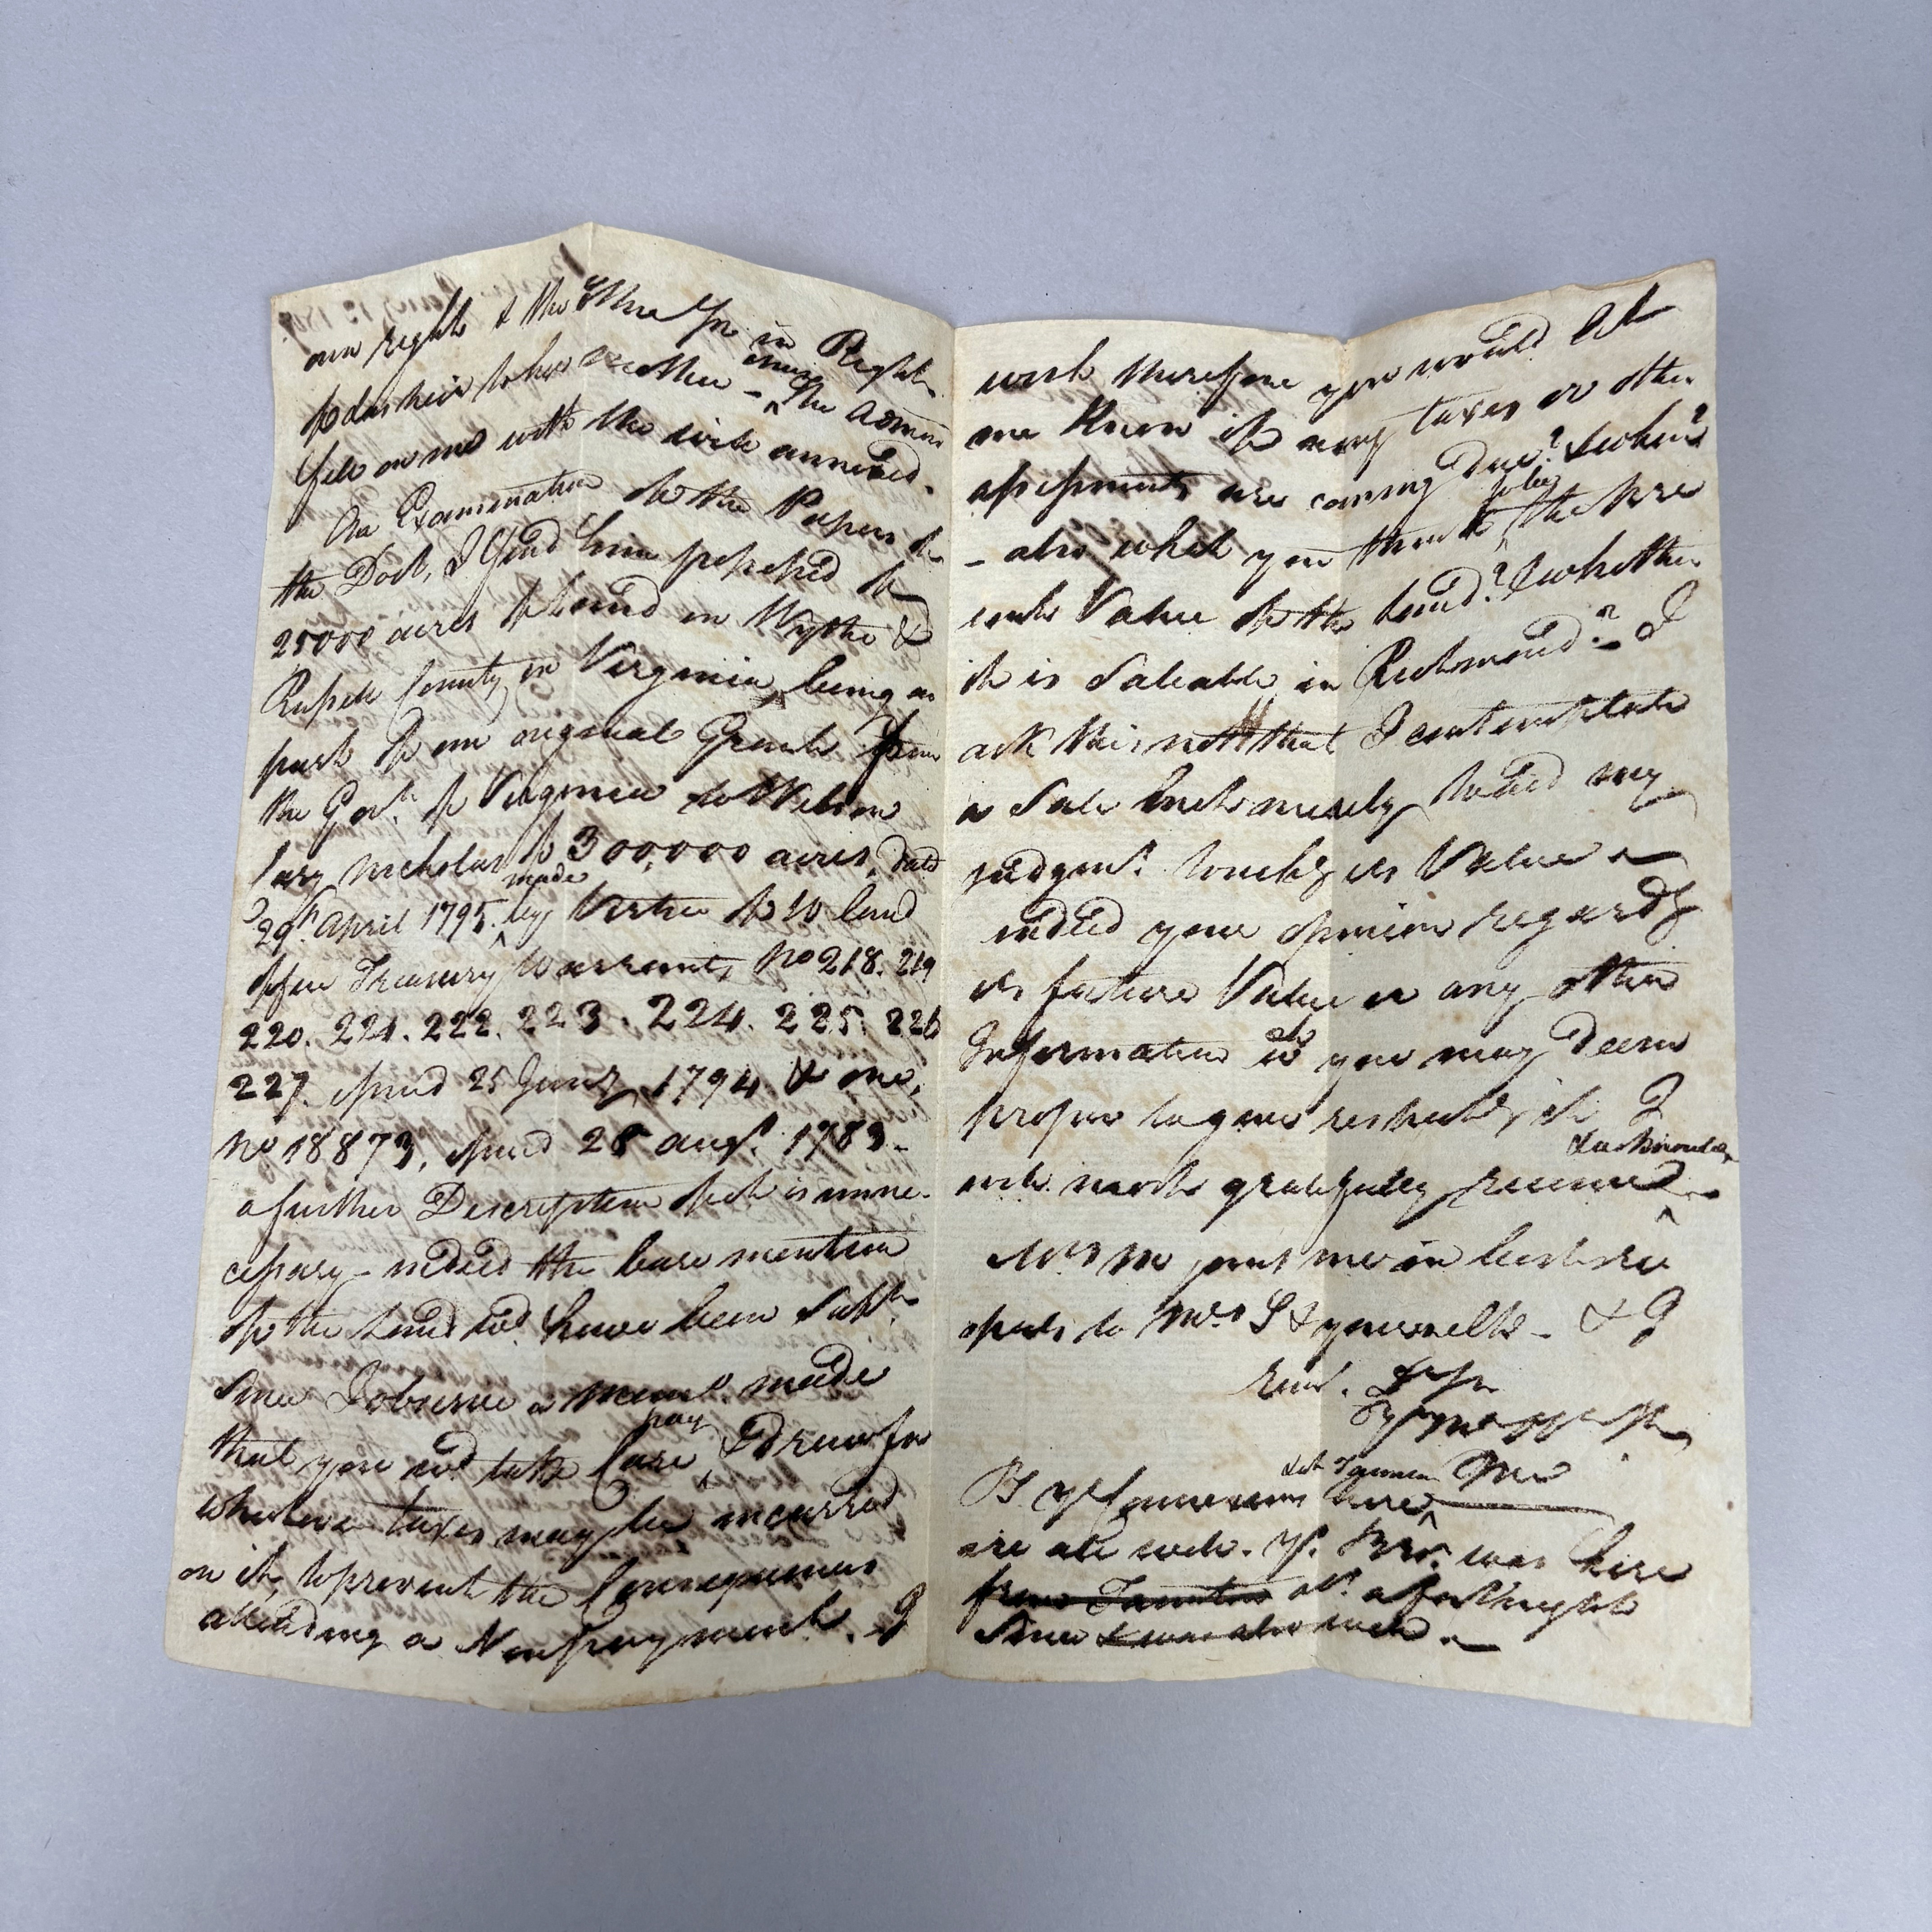 own right & the other for in Right
of das heir to her mother - The Admn
fell on me with the will annexed.
On Examination of the Papers of
the Doct, I find him possessed of
25000 acres of land in Wythe &
Russell County in Virginia, being a
part of an original Grant from
the Govt. of Virginia to Wilson
Cary Nicholas of 300,000 acres, dated
29th April 1795. made by Virtue of 10 land
office Treasury Warrants, No 218. 219
220. 221. 222. 223. 224. 225. 226
227. issued 25 Jany 1794 & one,
No 18873, issued 28 Augt. 1783-
a further Description of it is unne-
cessary - indeed the bare mention
of the Land wd have been Sufft.
since I observe a Memo made
that you wd take Care, pay & Draw for
whatever taxes may be incurred
on it, to prevent the Consequences
attending a Non payment. I
wish therefore you would let
me Know if any taxes or other
assessments are coming due? & when?
- also what you think to be the pre
sent Value of the land? & whether
it is Saleable in Richmond? - I
ask this not that I contemplate
a Sale but merely to aid my
judgmt. touchg its Value -
indeed your opinion regardg
its future Value or any other
Information wh you may deem
proper to give respectg it I
will most gratefully receive
Mrs M joins me in best re
spects to Mrs S & yourself - & I
remd. 
PS. yr Connexions here
are all well. Yr. Bror. was here
from Taunton abt. a fortnight
Since & was also well. -